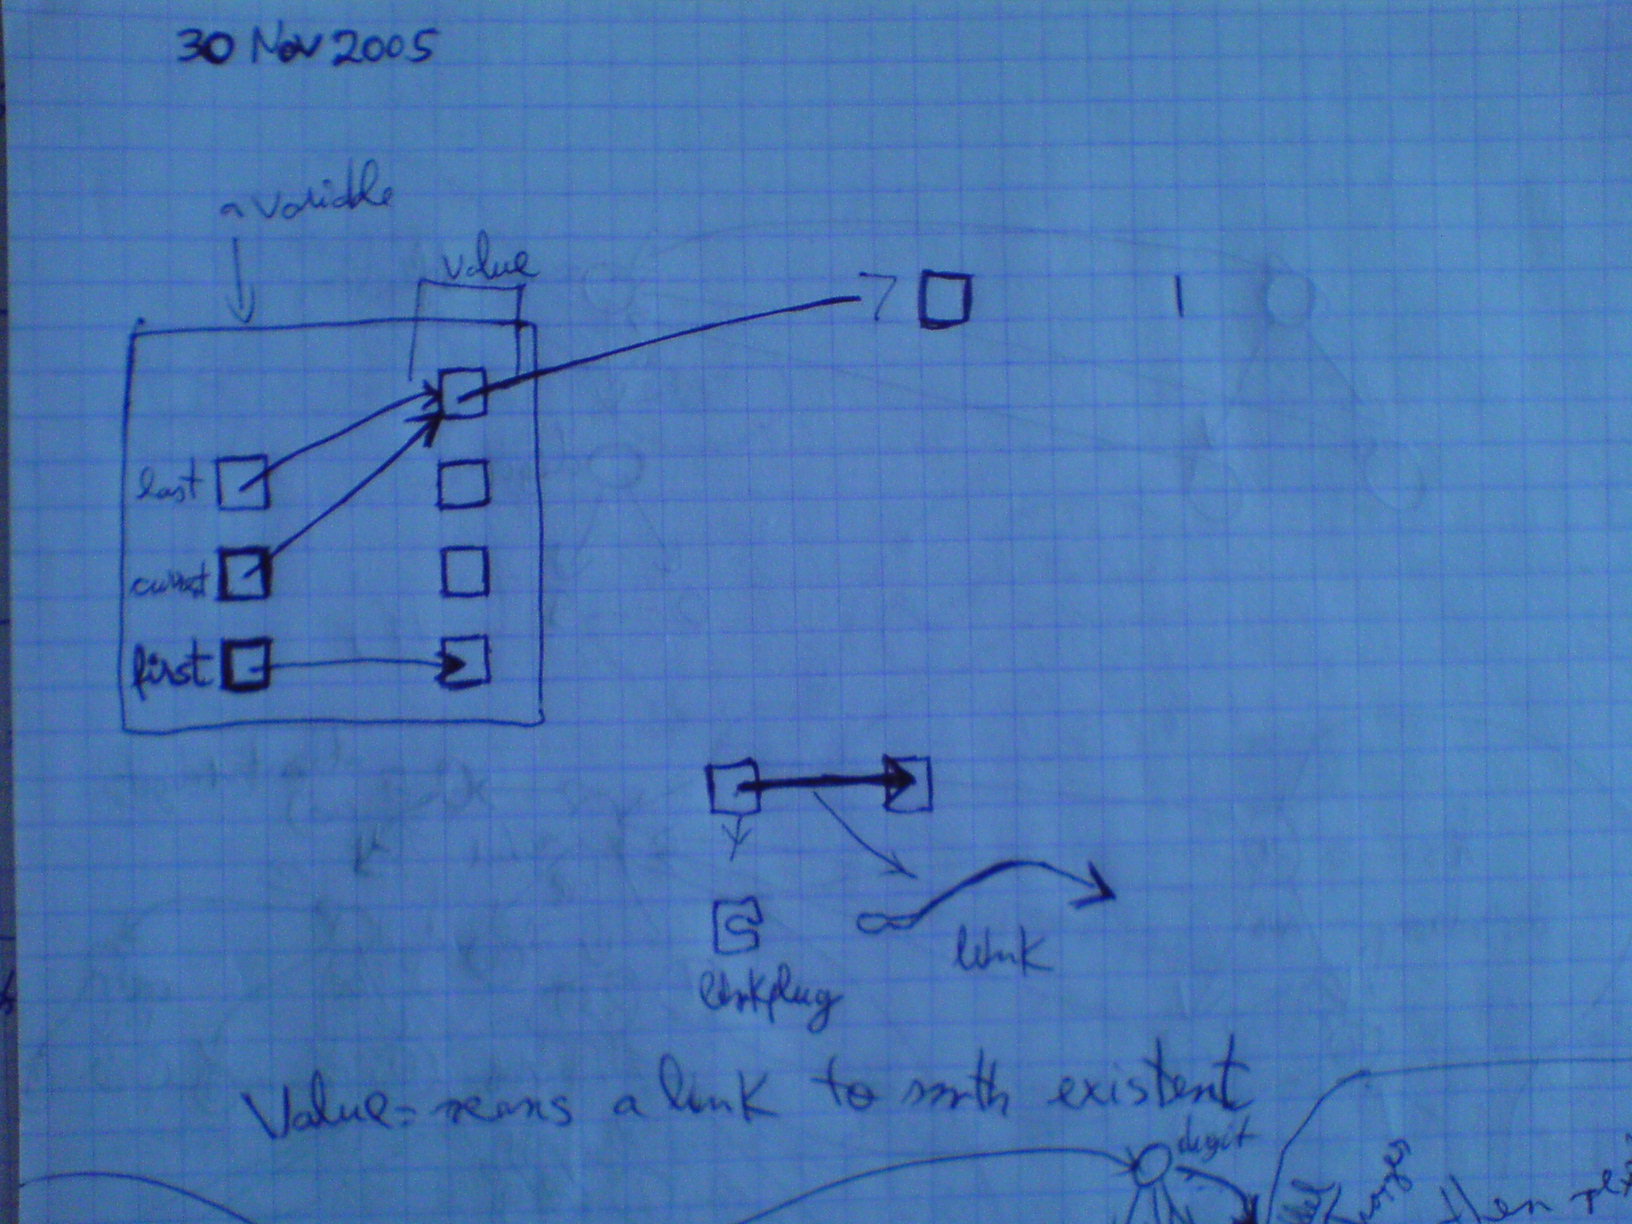 30 Nov 2005
a variable
value
last
current
first
link
linkplug
Value = means a link to smth existent
digit
then